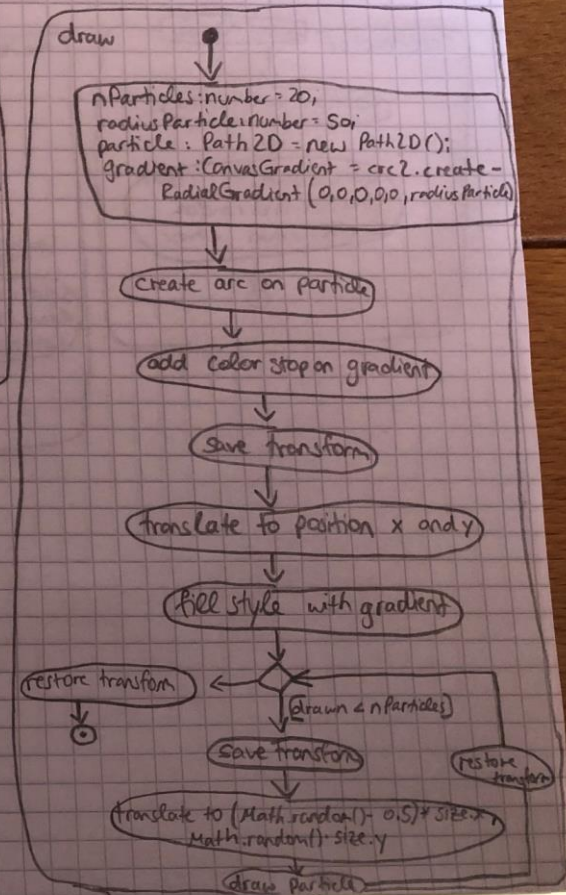 draw
nParticles:number = 20,
radiusParticle:number = 50;
particle : Path2D = new Path2D();
gradient : CanvasGradient = crc2.create-
RadialGradient (0,0,0,0,0,radiusParticle)
create arc on particle
add color stop on gradient
save transform
translate to position x and y
fill style with gradient
restore transform
[drawn < nParticles]
save transform
restore
transform
translate to (Math.random() - 0.5) * size.x,
Math.random() · size.y
draw particle